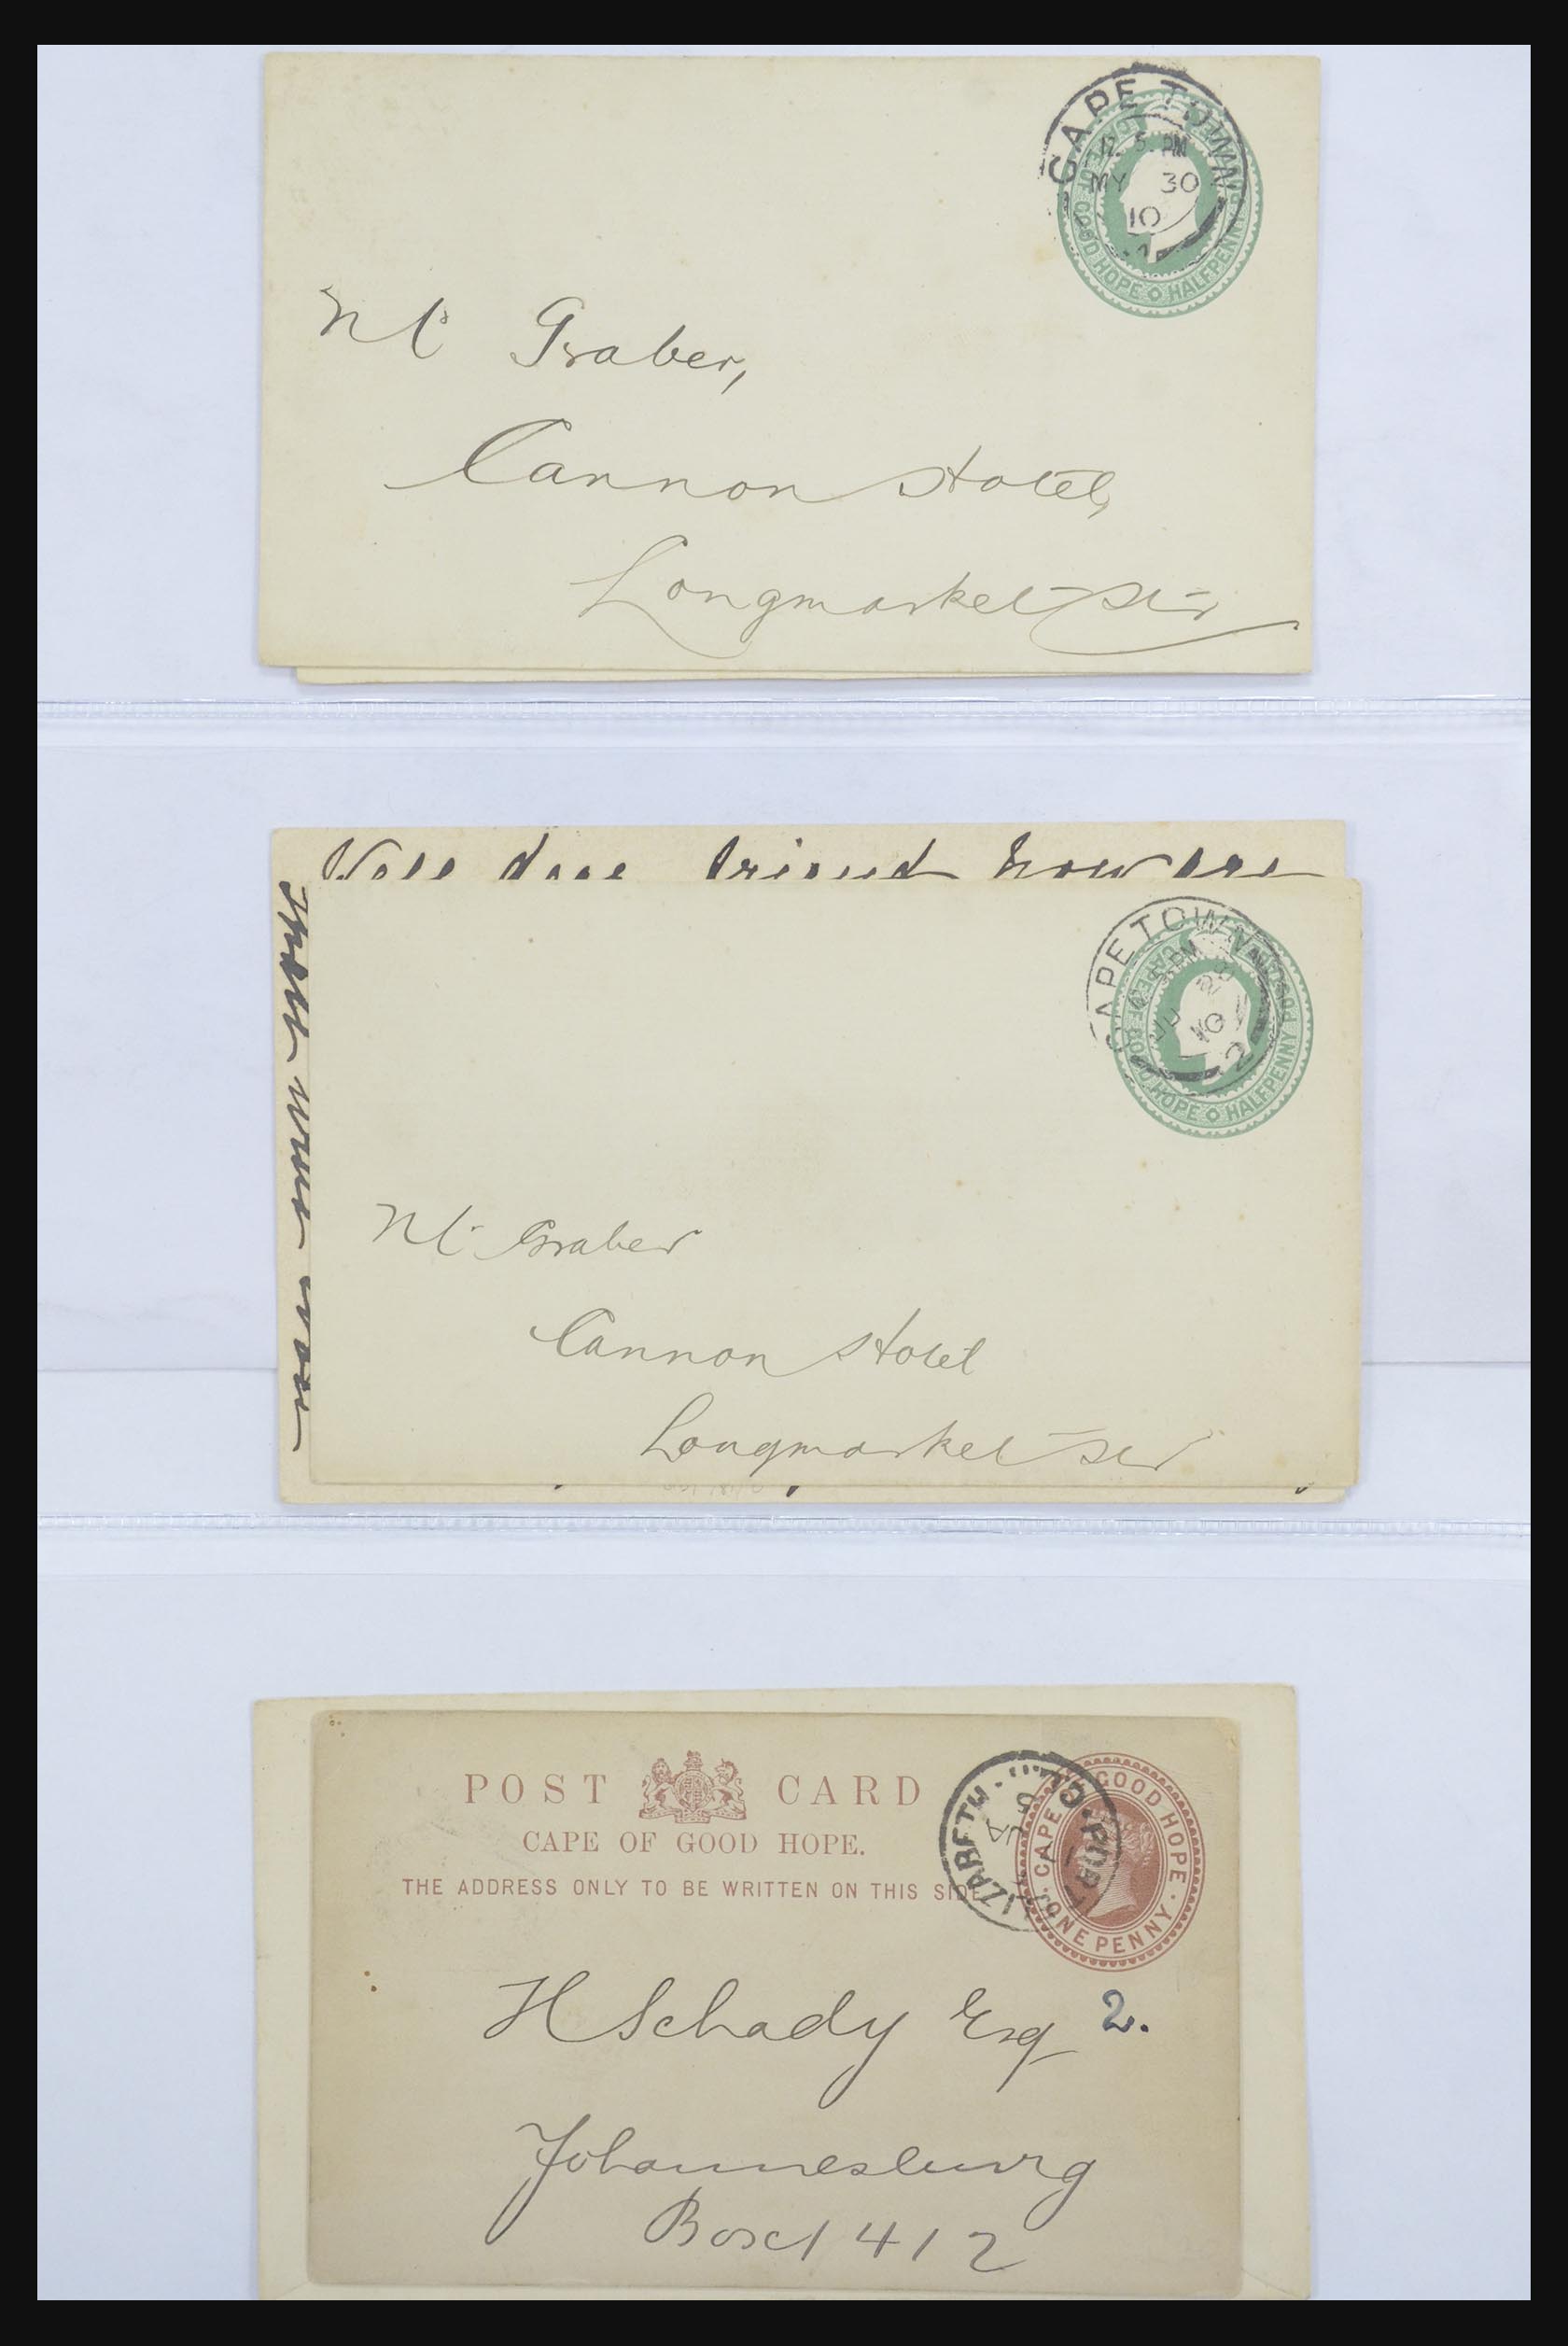 CAPE TOWN
12. 5 PM
MY 30
10
GOOD HOPE HALFPENNY
Mr Graber,
Cannon Hotel,
Longmarket Str
friend how are
CAPE TOWN
PM
10
2
HOPE HALFPENNY POSTAGE
Mr Graber
Cannon Hotel
Longmarket Str
POST CARD
CAPE OF GOOD HOPE.
THE ADDRESS ONLY TO BE WRITTEN ON THIS SIDE
CAPE OF GOOD HOPE.
ONE PENNY.
H Schady Esq 2.
Johannesburg
Box 412